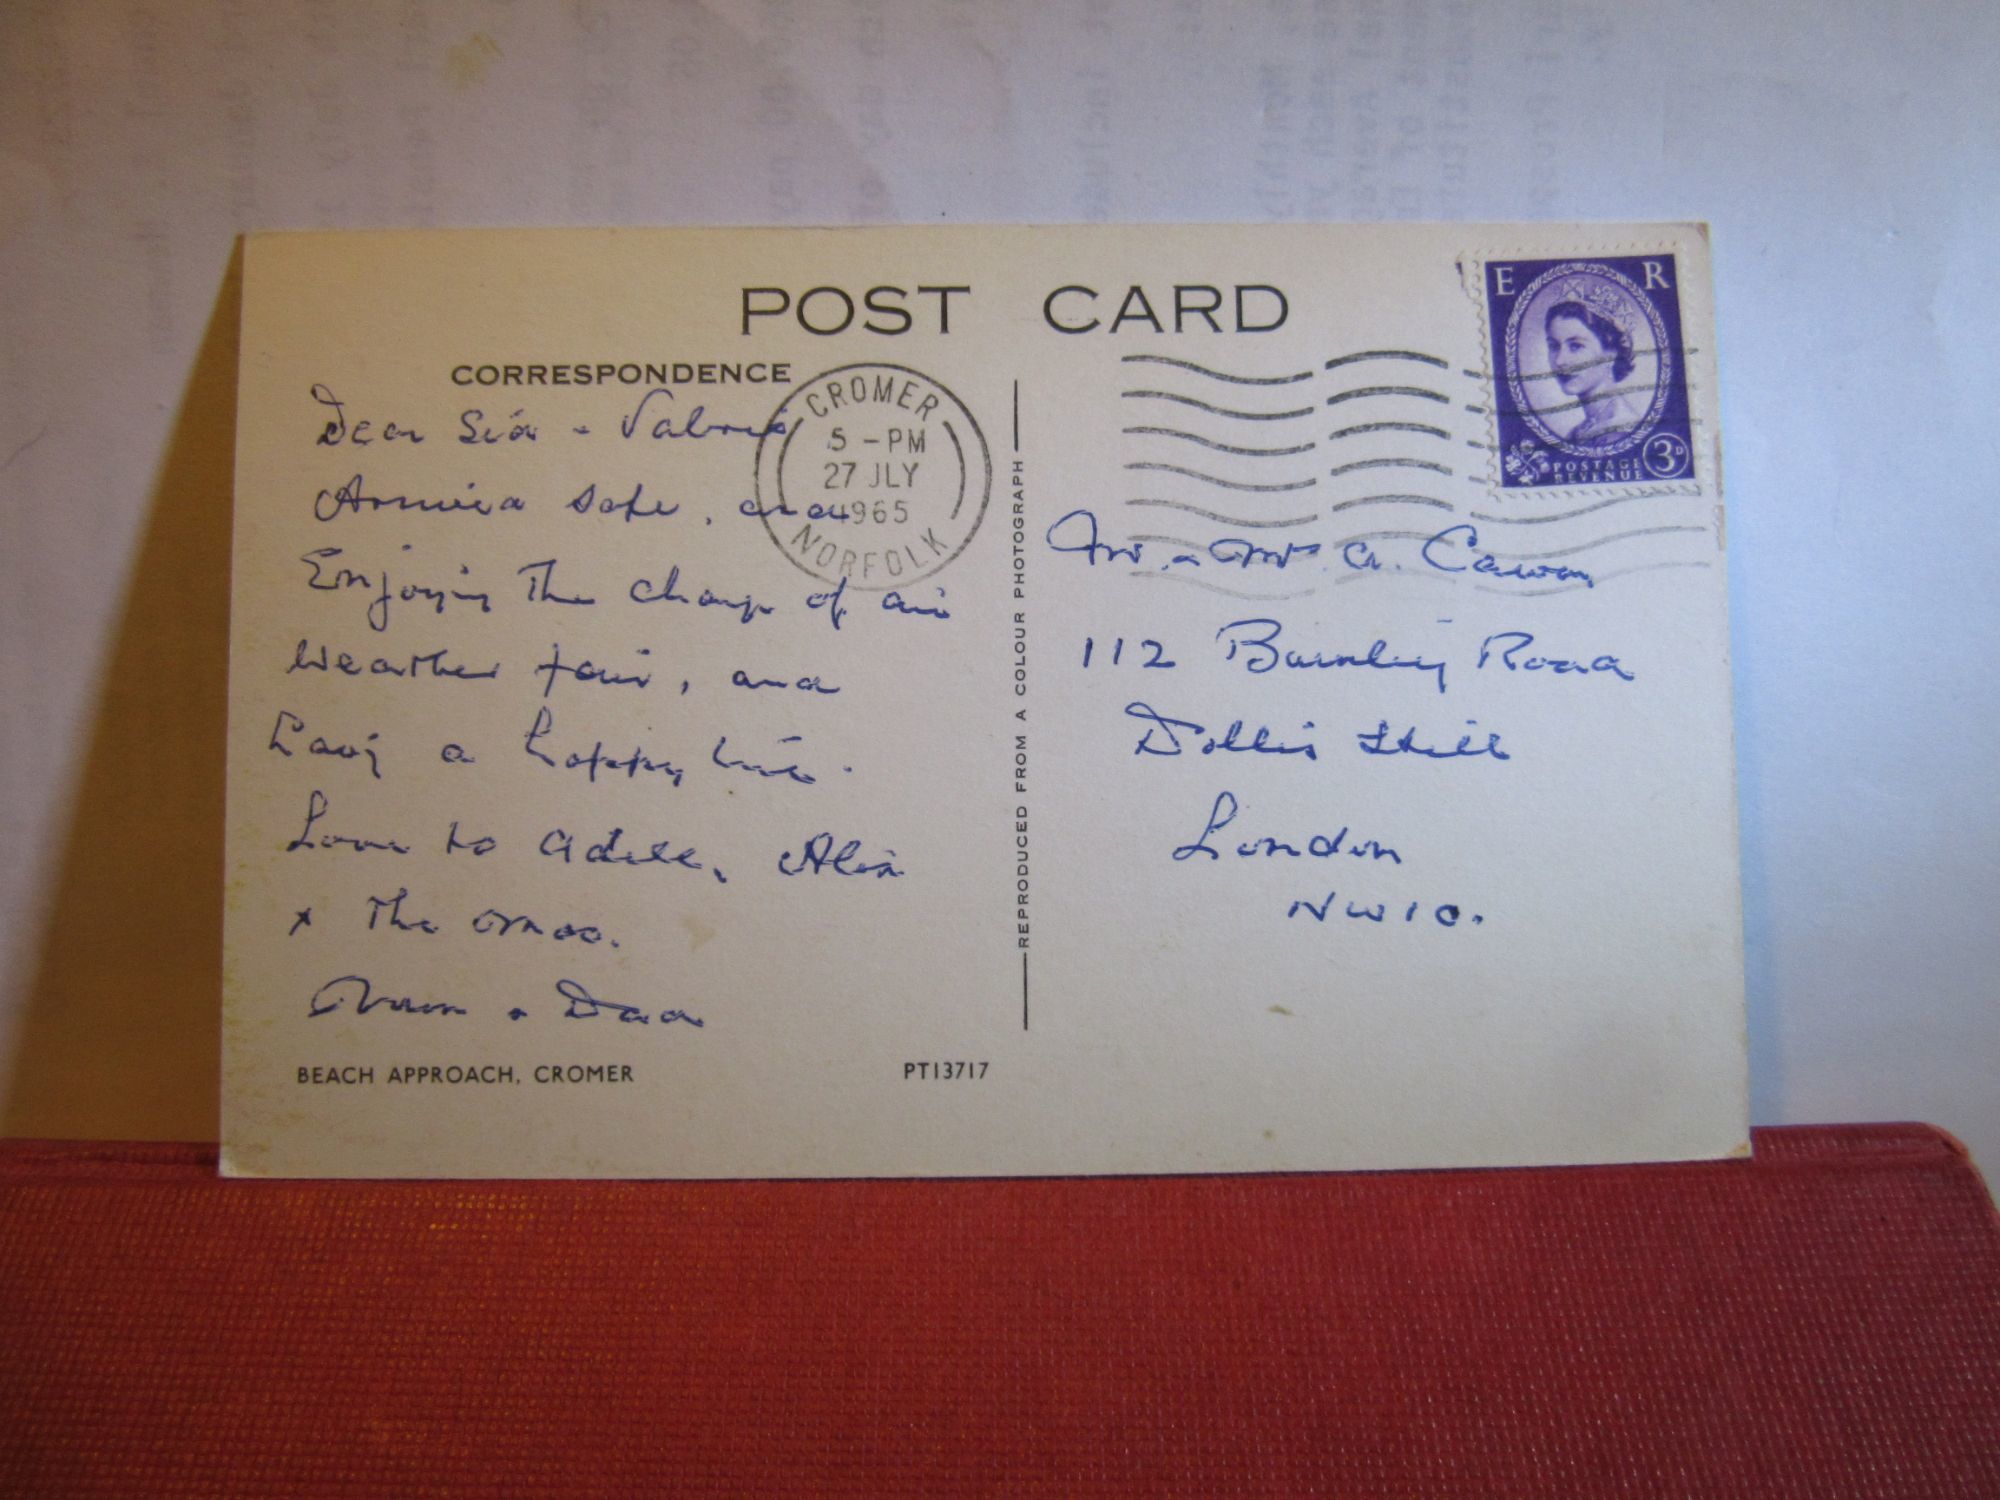 POST CARD
CORRESPONDENCE
Dear Sid & Valerie
Arrived safe, and
Enjoying The change of air
Weather fair, and
having a happy time.
Love to Adele, Alan
& The
Mum & Dad
BEACH APPROACH, CROMER
PT13717
CROMER
5 - PM
27 JLY
1965
NORFOLK
REPRODUCED FROM A COLOUR PHOTOGRAPH
E R
POSTAGE
REVENUE
3D
Mr. & Mrs
112 Burnley Road
Dollis Hill
London
NW10.